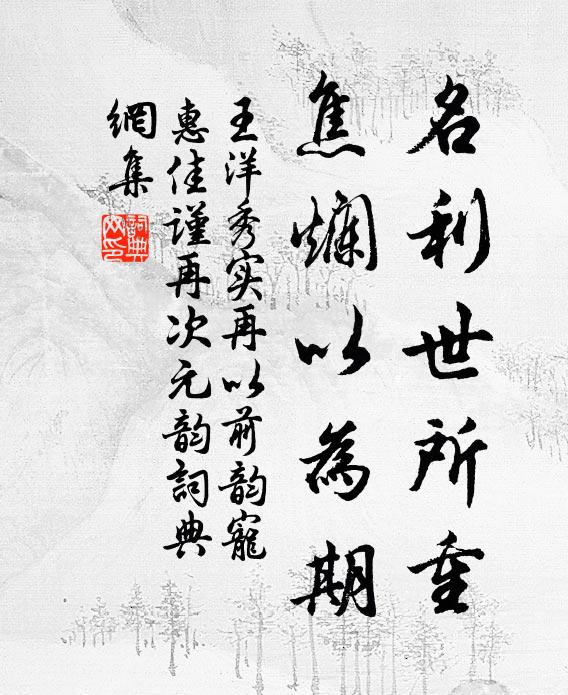 名利世所重
焦爛以為期
王洋秀实再以前韵寵
惠佳谨再次元韵詞典
網集
詞典
网印